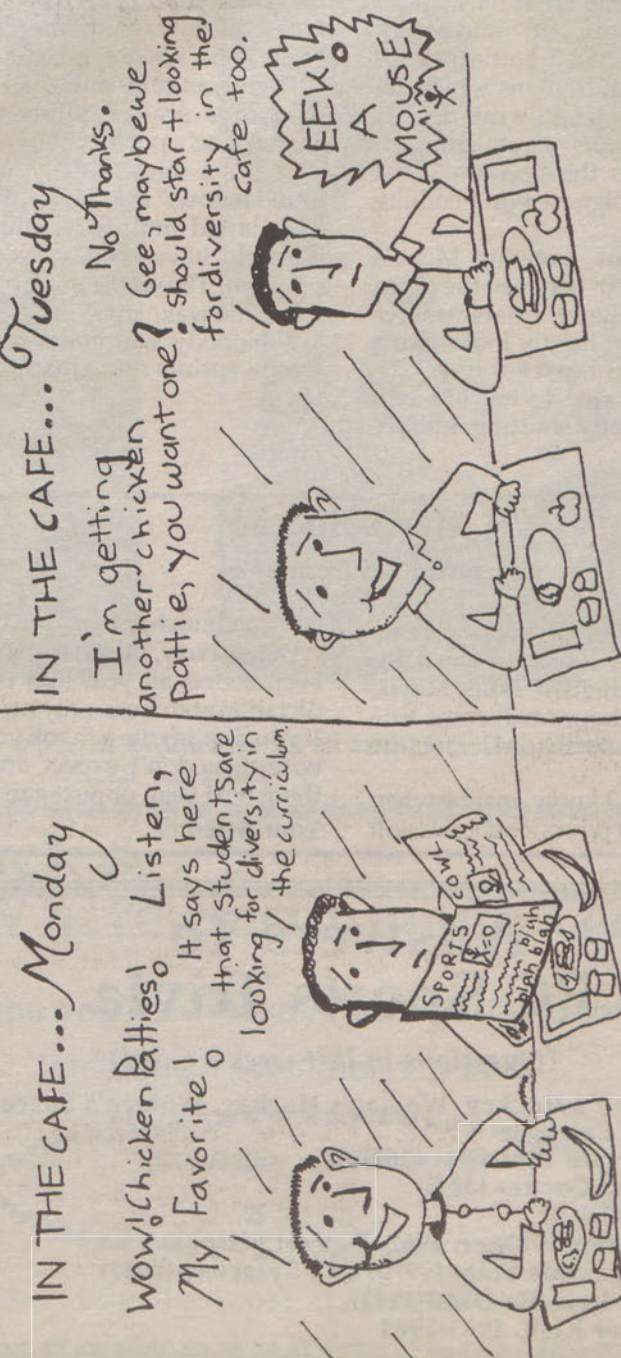 IN THE CAFE... Monday
WOW! Chicken Patties!
My Favorite!
Listen,
It says here
that students are
looking for diversity in
the curriculum.
SPORTS
COWL
blah
blah blah
IN THE CAFE... Tuesday
I'm getting
another chicken
pattie, you want one?
No Thanks.
Gee, maybe we
should start looking
for diversity in the
cafe too.
EEK!
A
MOUSE